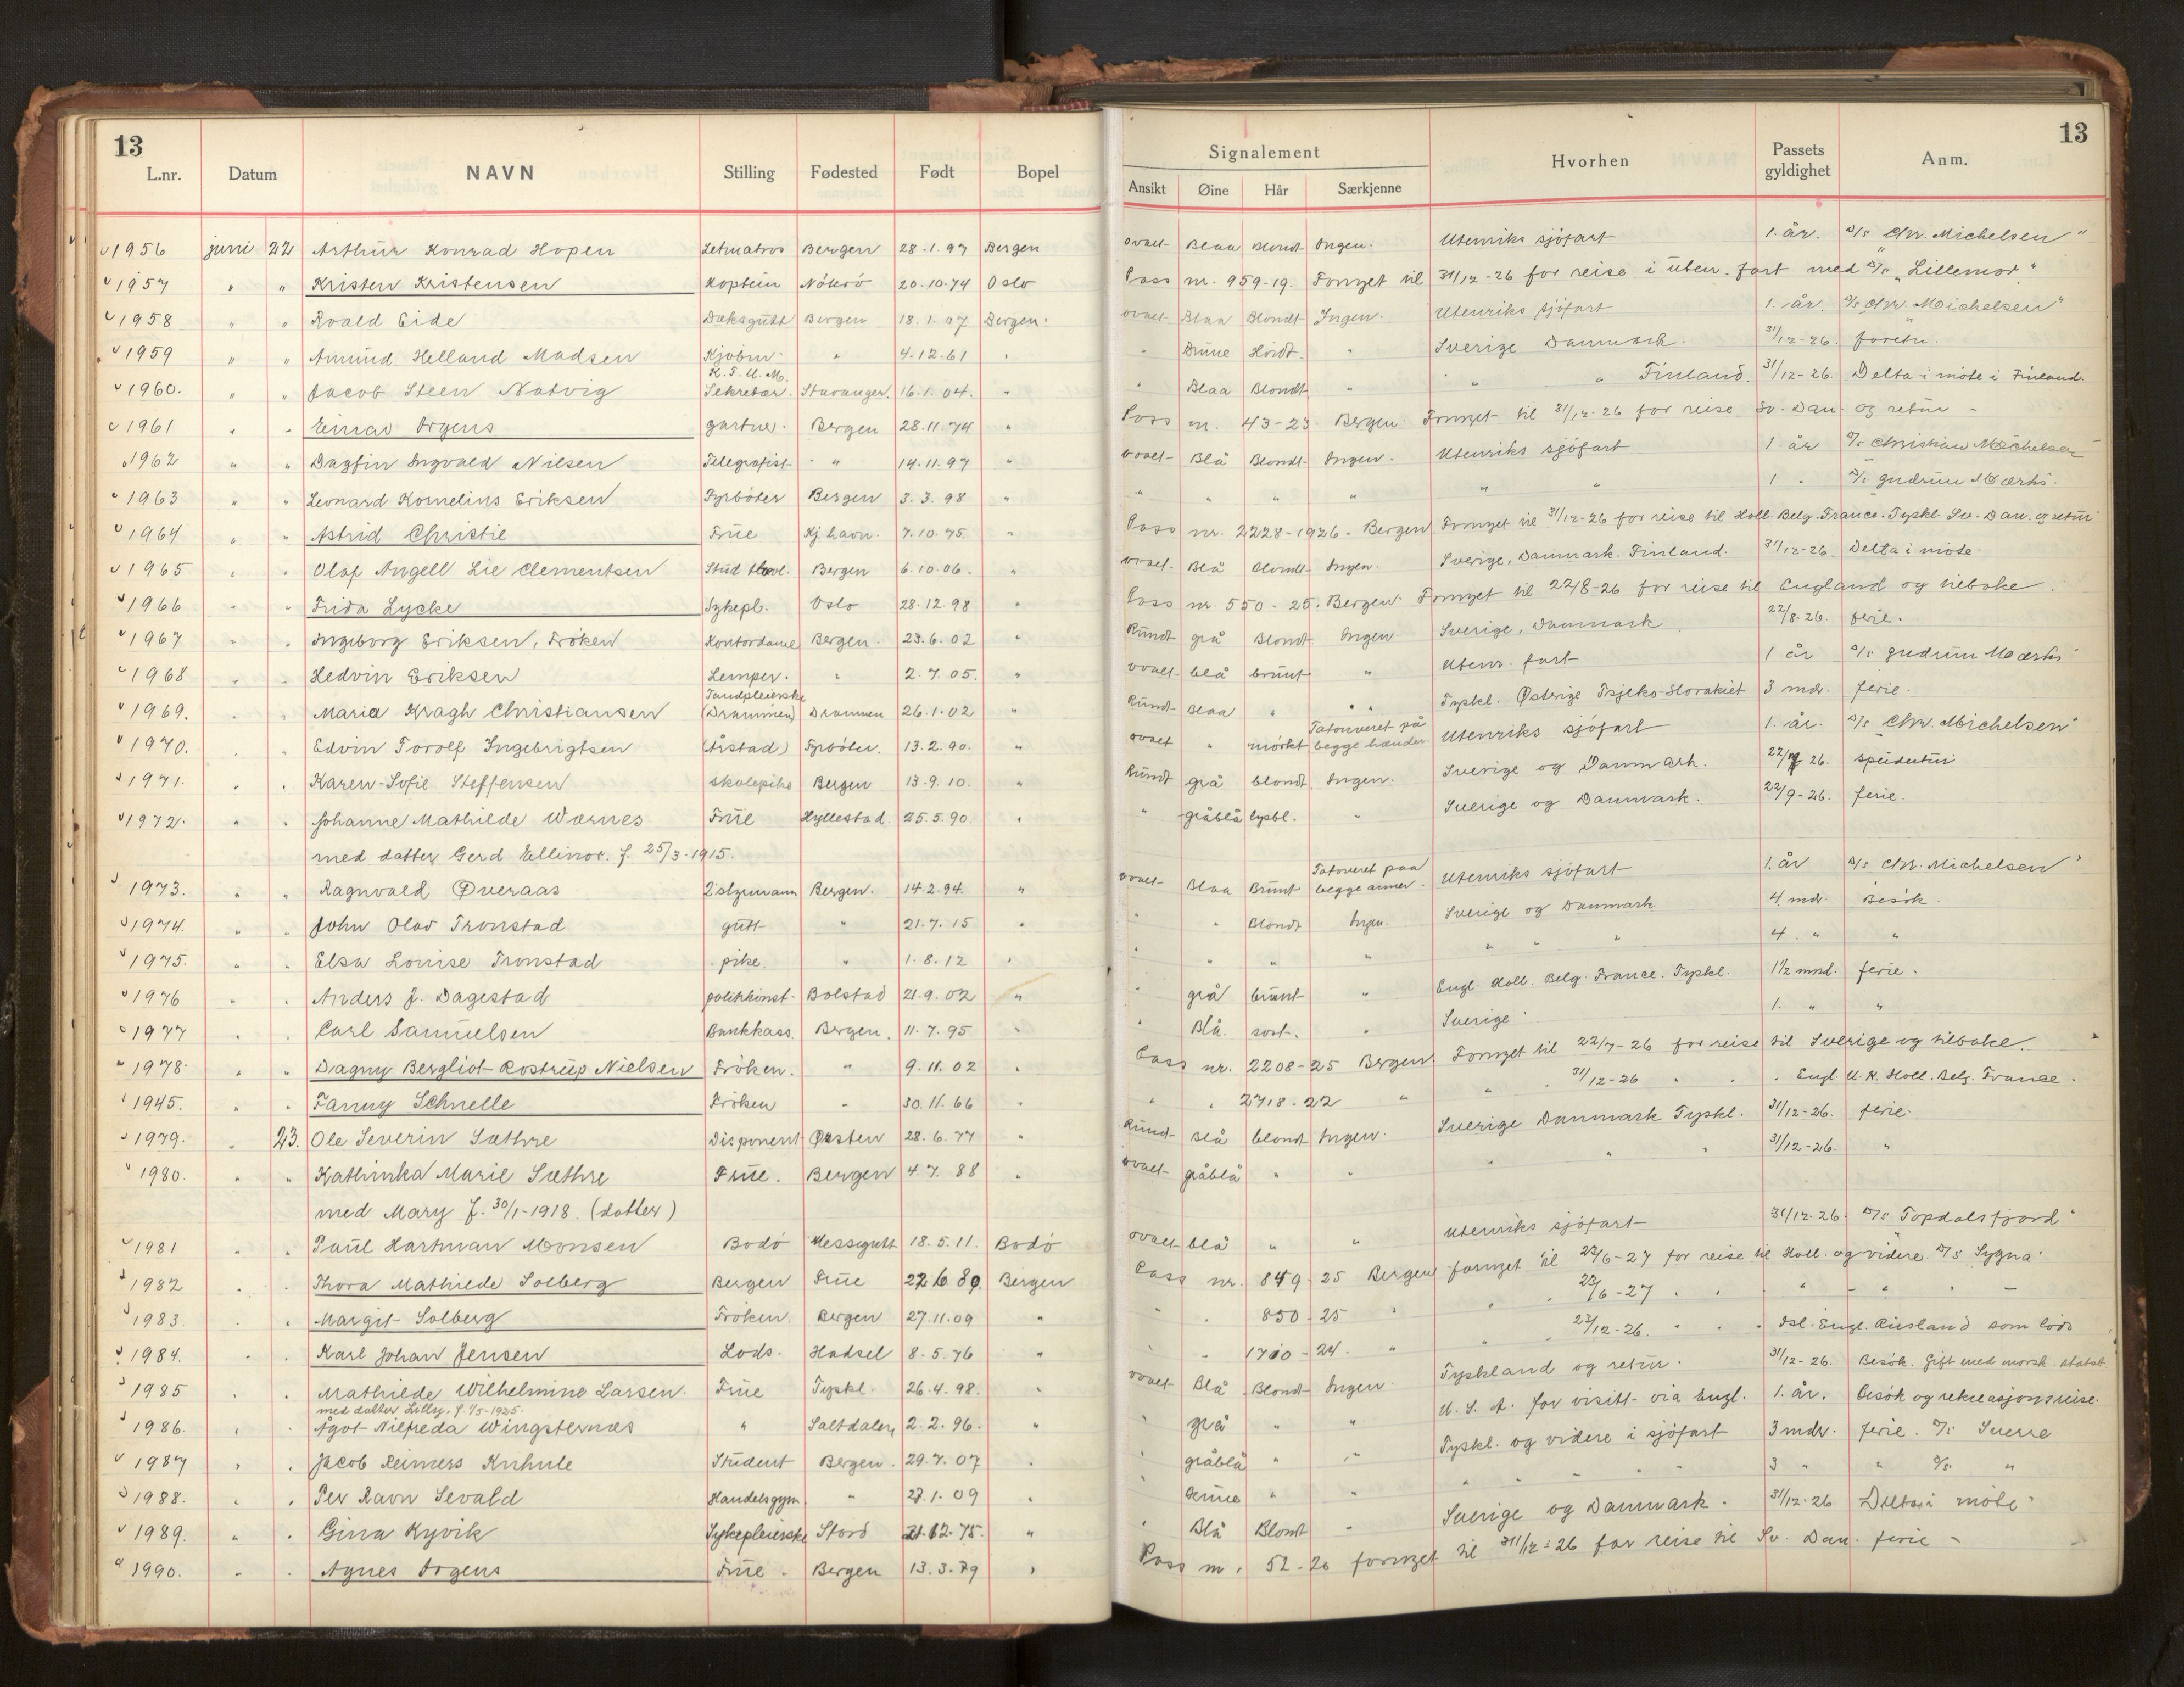 13
L.nr. Datum NAVN Stilling Fødested Født Bopel
1956 juni 22 Arthur Konrad Hopen Letmatros Bergen 28.1.97 Bergen
1957 " " Kristen Kristensen Kaptein Nöterö 20.10.74 Oslo
1958 " " Roald Eide Daksgutt Bergen 18.1.07 Bergen.
1959 " " Amund Helland Madsen Kjöbm. " 4.12.61 "
K.F.U.M.
1960. " " Jacob Steen Natvig Sekretær. Stavanger. 16.1.04. "
1961 " " Einar Irgens gartner. Bergen 28.11.74 "
1962 " " Dagfin Ingvald Nilsen Telegrafist " 14.11.97 "
1963 " " Leonard Kornelius Eriksen Fyrböter Bergen 3.3.98 "
1964 " " Astrid Christie Frue Kj.havn. 7.10.75. "
1965 " " Olaf Angell Lie Clementsen Stud Bergen 6.10.06. "
1966 " " Frida Lycke Sykepl. Oslo 28.12.98 "
1967 " " Ingeborg Eriksen, Fröken Kontordame Bergen. 23.6.02 "
1968 " " Hedvin Eriksen Lemper. " 2.7.05. "
Tandpleierske
1969. " " Maria Kragh Christiansen (Drammen) Drammen 26.1.02 "
1970. " " Edvin Torolf Ingebrigtsen (Årstad) Fyrböter. 13.2.90. "
1971. " " Karen-Sofie Steffensen skolepike Bergen 13.9.10. "
1972. " " Johanne Mathilde Wærnes Frue Hyllestad. 25.5.90. "
med datter Gerd Ellinor. f. 25/3-1915.
1973. " " Ragnvald Øveraas Bergen. 14.2.94. "
1974. " " John Olav Tronstad gutt " 21.7.15 "
1975. " " Elsa Louise Tronstad pike. " 1.8.12 "
1976 " " Anders J. Dagestad politikonst. Bolstad 21.9.02 "
1977 " " Carl Samuelsen Bankkass. Bergen. 11.7.95 "
1978. " " Dagny Bergliot Rostrup Nielsen Fröken. " 9.11.02 "
1945. " " Fanny Schnelle Fröken " 30.11.66 "
1979. " 23. Ole Severin Sæthre Disponent Ørsten 28.6.77 "
1980. " " Kathinka Marie Sæthre Frue. Bergen 4.7.88 "
med Mary f. 30/1-1918. (datter)
1981 " " Paul Hartman Monsen Bodö Messegutt 18.5.11. Bodö
1982 " " Thora Mathilde Solberg Bergen Frue 22.6.80. Bergen
1983. " " Margit Solberg Fröken. Bergen 27.11.09 "
1984. " " Karl Johan Jensen Lods. Hadsel 8.5.76 "
1985 " " Mathilde Wilhelmine Larsen. Frue Tyskl. 26.4.98. "
med datter Lilly, f. 1/5-1925.
1986. " " Ågot Nilfreda Wingsternæs " Saltdalen, 2.2.96. "
1987 " " Jacob Reimers Knhule Student Bergen. 29.7.07 "
1988. " " Per Ravn Sevald Handelsgym. " 27.1.09 "
1989. " " Gina Kyvik Sykepleierske Stord 21.12.75. "
1990. " " Agnes Irgens Frue. Bergen 13.3.79 "
13
Signalement Hvorhen Passets gyldighet Anm.
Ansikt Øine Hår Særkjenne
ovalt Blaa Blondt Ingen. Utenriks sjöfart 1. år. D/S Chr. Michelsen"
Pass nr. 959-19. Fornyet til 31/12-26 for reise i uten. fart med D/S "Lillemor."
ovalt Blaa Blondt Ingen. Utenriks sjöfart 1. år. D/S "Chr. Michelsen"
" Brune Hvidt. " Sverige Danmark. 31/12-26. forretn.
" Blaa Blondt " " " Finland. 31/12-26. Delta i möte i Finland.
Pass nr. 43-23. Bergen. Fornyet til 31/12-26 for reise Sv. Dan. og retur -
ovalt Blå Blondt Ingen. Utenriks sjöfart 1. år D/S Christian Michelsen
" " " " " " 1 " D/S Gudrun Mærsk.
Pass nr. 2228-1926. Bergen Fornyet til 31/12-26 for reise til Holl. Belg. France. Tyskl. Sv. Dan. og retur
ovalt Blå Blondt Ingen. Sverige, Danmark. Finland. 31/12-26. Delta i möte.
Pass nr. 550-25. Bergen. Fornyet til 22/8-26 for reise til England og tilbake.
Rundt grå Blondt Ingen Sverige, Danmark 22/8-26. ferie.
ovalt blå brunt " Utenr. fart 1 år D/S Gudrun Mærsk"
Rundt Blaa " " Tyskl. Østerige Tsjeko-Slovakiet 3 mdr. ferie.
ovalt " mörkt Tatoveret på begge hænder. Utenriks sjöfart 1. år. D/S "Chr. Michelsen"
Rundt grå blondt Ingen. Sverige og Danmark. 22/7 26. speidertur
" gråblå lysbl. " Sverige og Danmark. 22/9-26. ferie.
ovalt Blaa Brunt Tatoveret paa begge armer. Utenriks sjöfart 1. år D/S Chr. Michelsen"
" " Blondt Ingen. Sverige og Danmark 4. mdr. Besök.
" " " " " " " 4. " "
" grå brunt " Engl. Holl. Belg. France. Tyskl. 1½ mnd. ferie.
" Blå. sort. " Sverige. 1. " "
Pass nr. 2208-25 Bergen Fornyet til 22/7-26 for reise til Sverige og tilbake.
" " 2718-22 " " " 31/12-26 " " " Engl. U.K. Holl. Belg. France.
Rundt Blå blondt Ingen. Sverige Danmark Tyskl. 31/12-26. ferie.
ovalt gråblå " " " " " 31/12-26. "
ovalt blå " " Utenriks sjöfart 31/12-26. D/S Topdalsfjord"
Pass nr. 849-25 Bergen fornyet til 23/6-27 for reise til Holl. og videre. D/S Sygna"
" " 850-25 " " " 23/6-27 " " " " "
" " 1710-24. " " " 23/12-26. " " " Isl. Engl. Rusland som lods
ovalt Blå Blondt Ingen Tyskland og retur. 31/12-26. Besök. Gift med norsk statsb.
" grå " " U.S.A. for visitt via Engl. 1. år. Besök og rekreasjonsreise.
" gråblå " " Tyskl. og videre i sjöfart 3 mdr. ferie. D/S Sverre
" Brune " " " " " " 3 " " D/S "
" Blå Blondt " Sverige og Danmark. 31/12-26 Delta i möte"
Pass nr. 52-26 fornyet til 31/12-26 for reise til Sv. Dan. ferie -